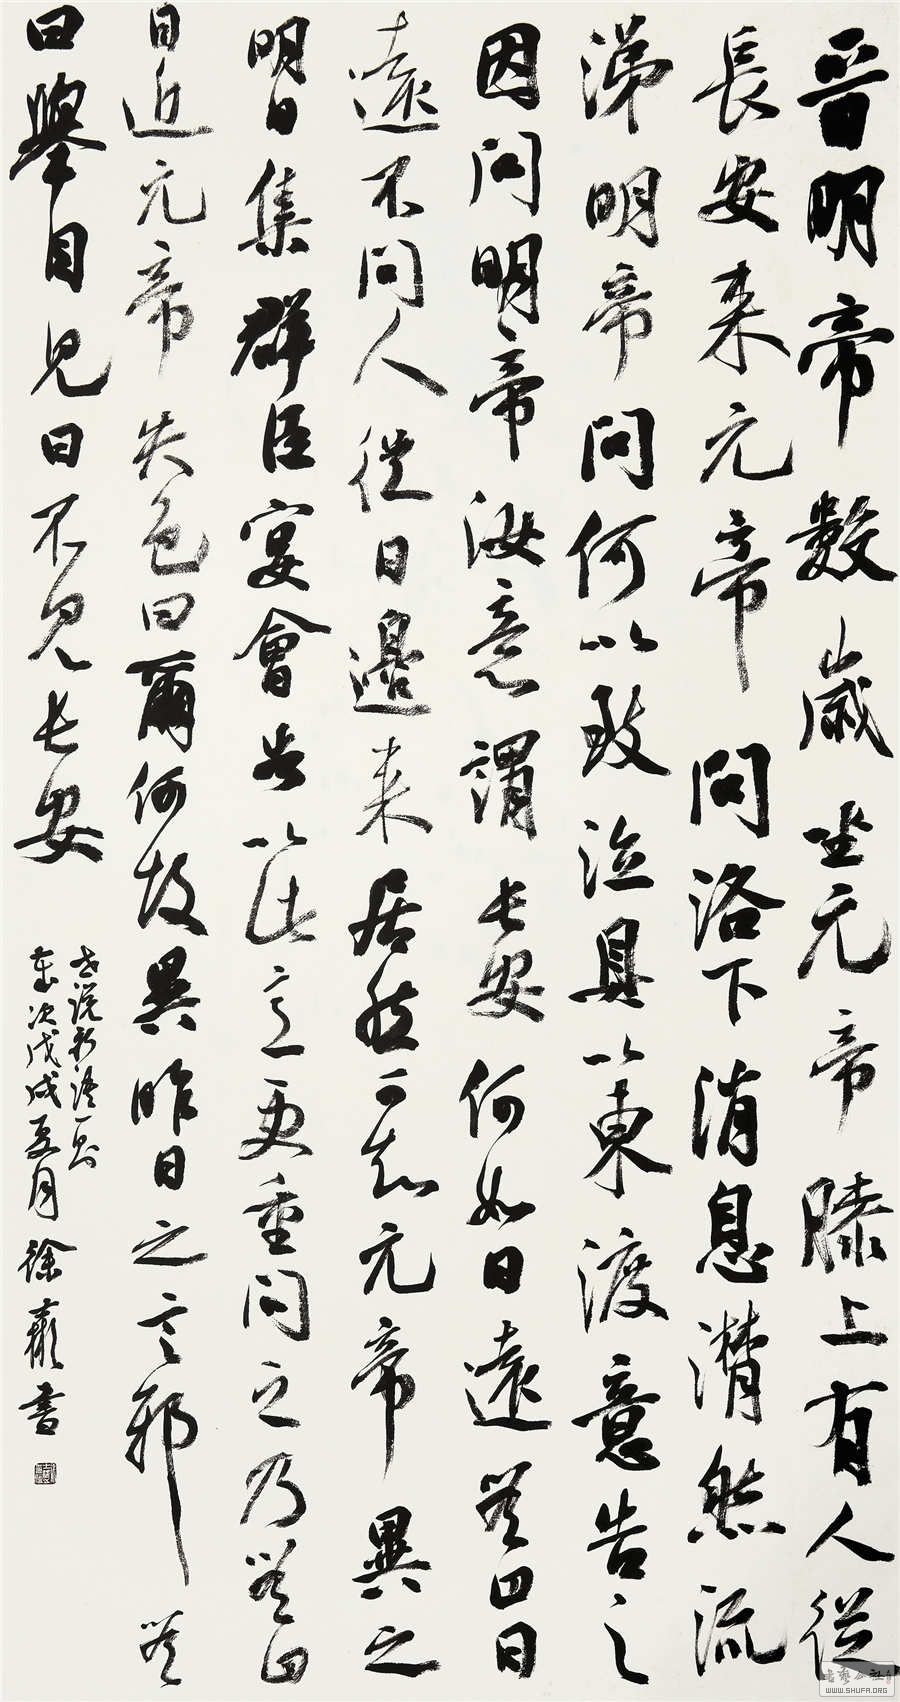 晋明帝數歲坐元帝膝上有人從
長安來元帝問洛下消息潸然流
涕明帝問何以致泣具以東渡意告之
因問明帝汝意謂長安何如日遠答曰日
遠不問人從日邊來居然可知元帝異之
明日集群臣宴會告以此意更重問之乃答曰
日近元帝失色曰爾何故異昨日之言邪答
曰舉目見日不見長安
世説新語一則
歲次戊戌夏月徐書
WWW.SHUFA.ORG